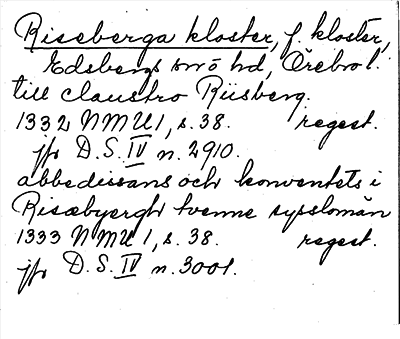 Riseberga kloster, f. kloster,
Edsbergs sn o hd, Örebro l.
till claustro Riisberg.
1332 NMU 1, s. 38. regest.
jfr D.S. IV n. 2910.
abbedissans och konventets i
Risæbyergh tvenne sysslomän
1333 NMU 1, s. 38. regest.
jfr D.S. IV n. 3001.